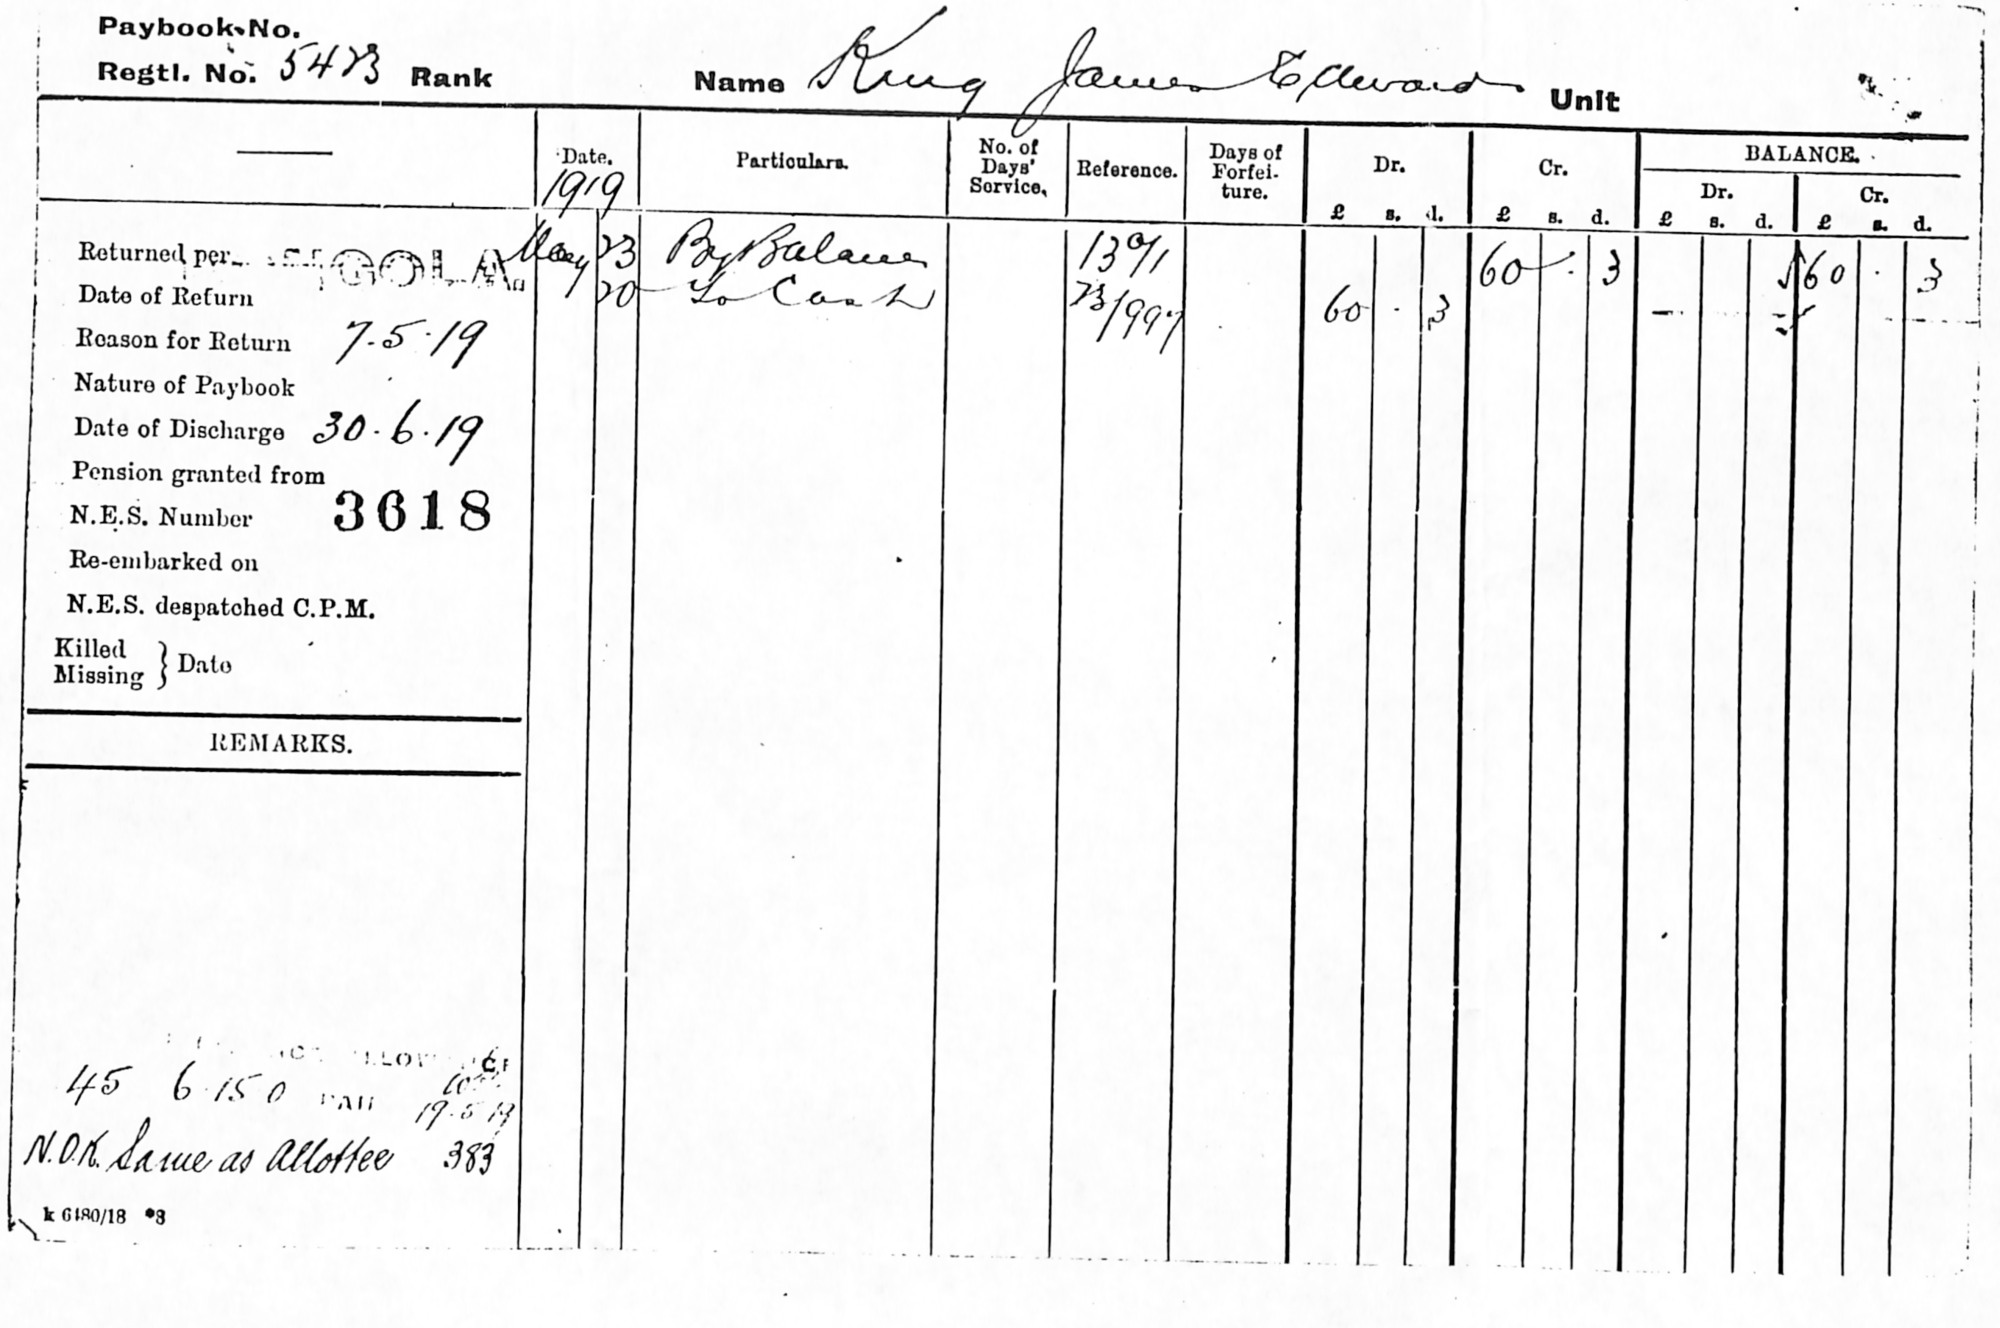 Paybook No.
Regtl. No. 5423 Rank Name King James Edward Unit
Date. Particulars. No. of Days' Service. Reference. Days of Forfeiture. Dr. Cr. BALANCE.
1919
Dr. Cr.
£ s. d. £ s. d. £ s. d. £ s. d.
Returned per May 23 By Balance 1391 60 . 3 60 . 3
Date of Return 20 To Cash 23/997 60 . 3
Reason for Return 7.5.19
Nature of Paybook
Date of Discharge 30.6.19
Pension granted from
N.E.S. Number 3618
Re-embarked on
N.E.S. despatched C.P.M.
Killed
Missing } Date
REMARKS.
45 6.15.0 PAID 19.5.19
N.O.K. Same as Allottee 383
k 6480/18